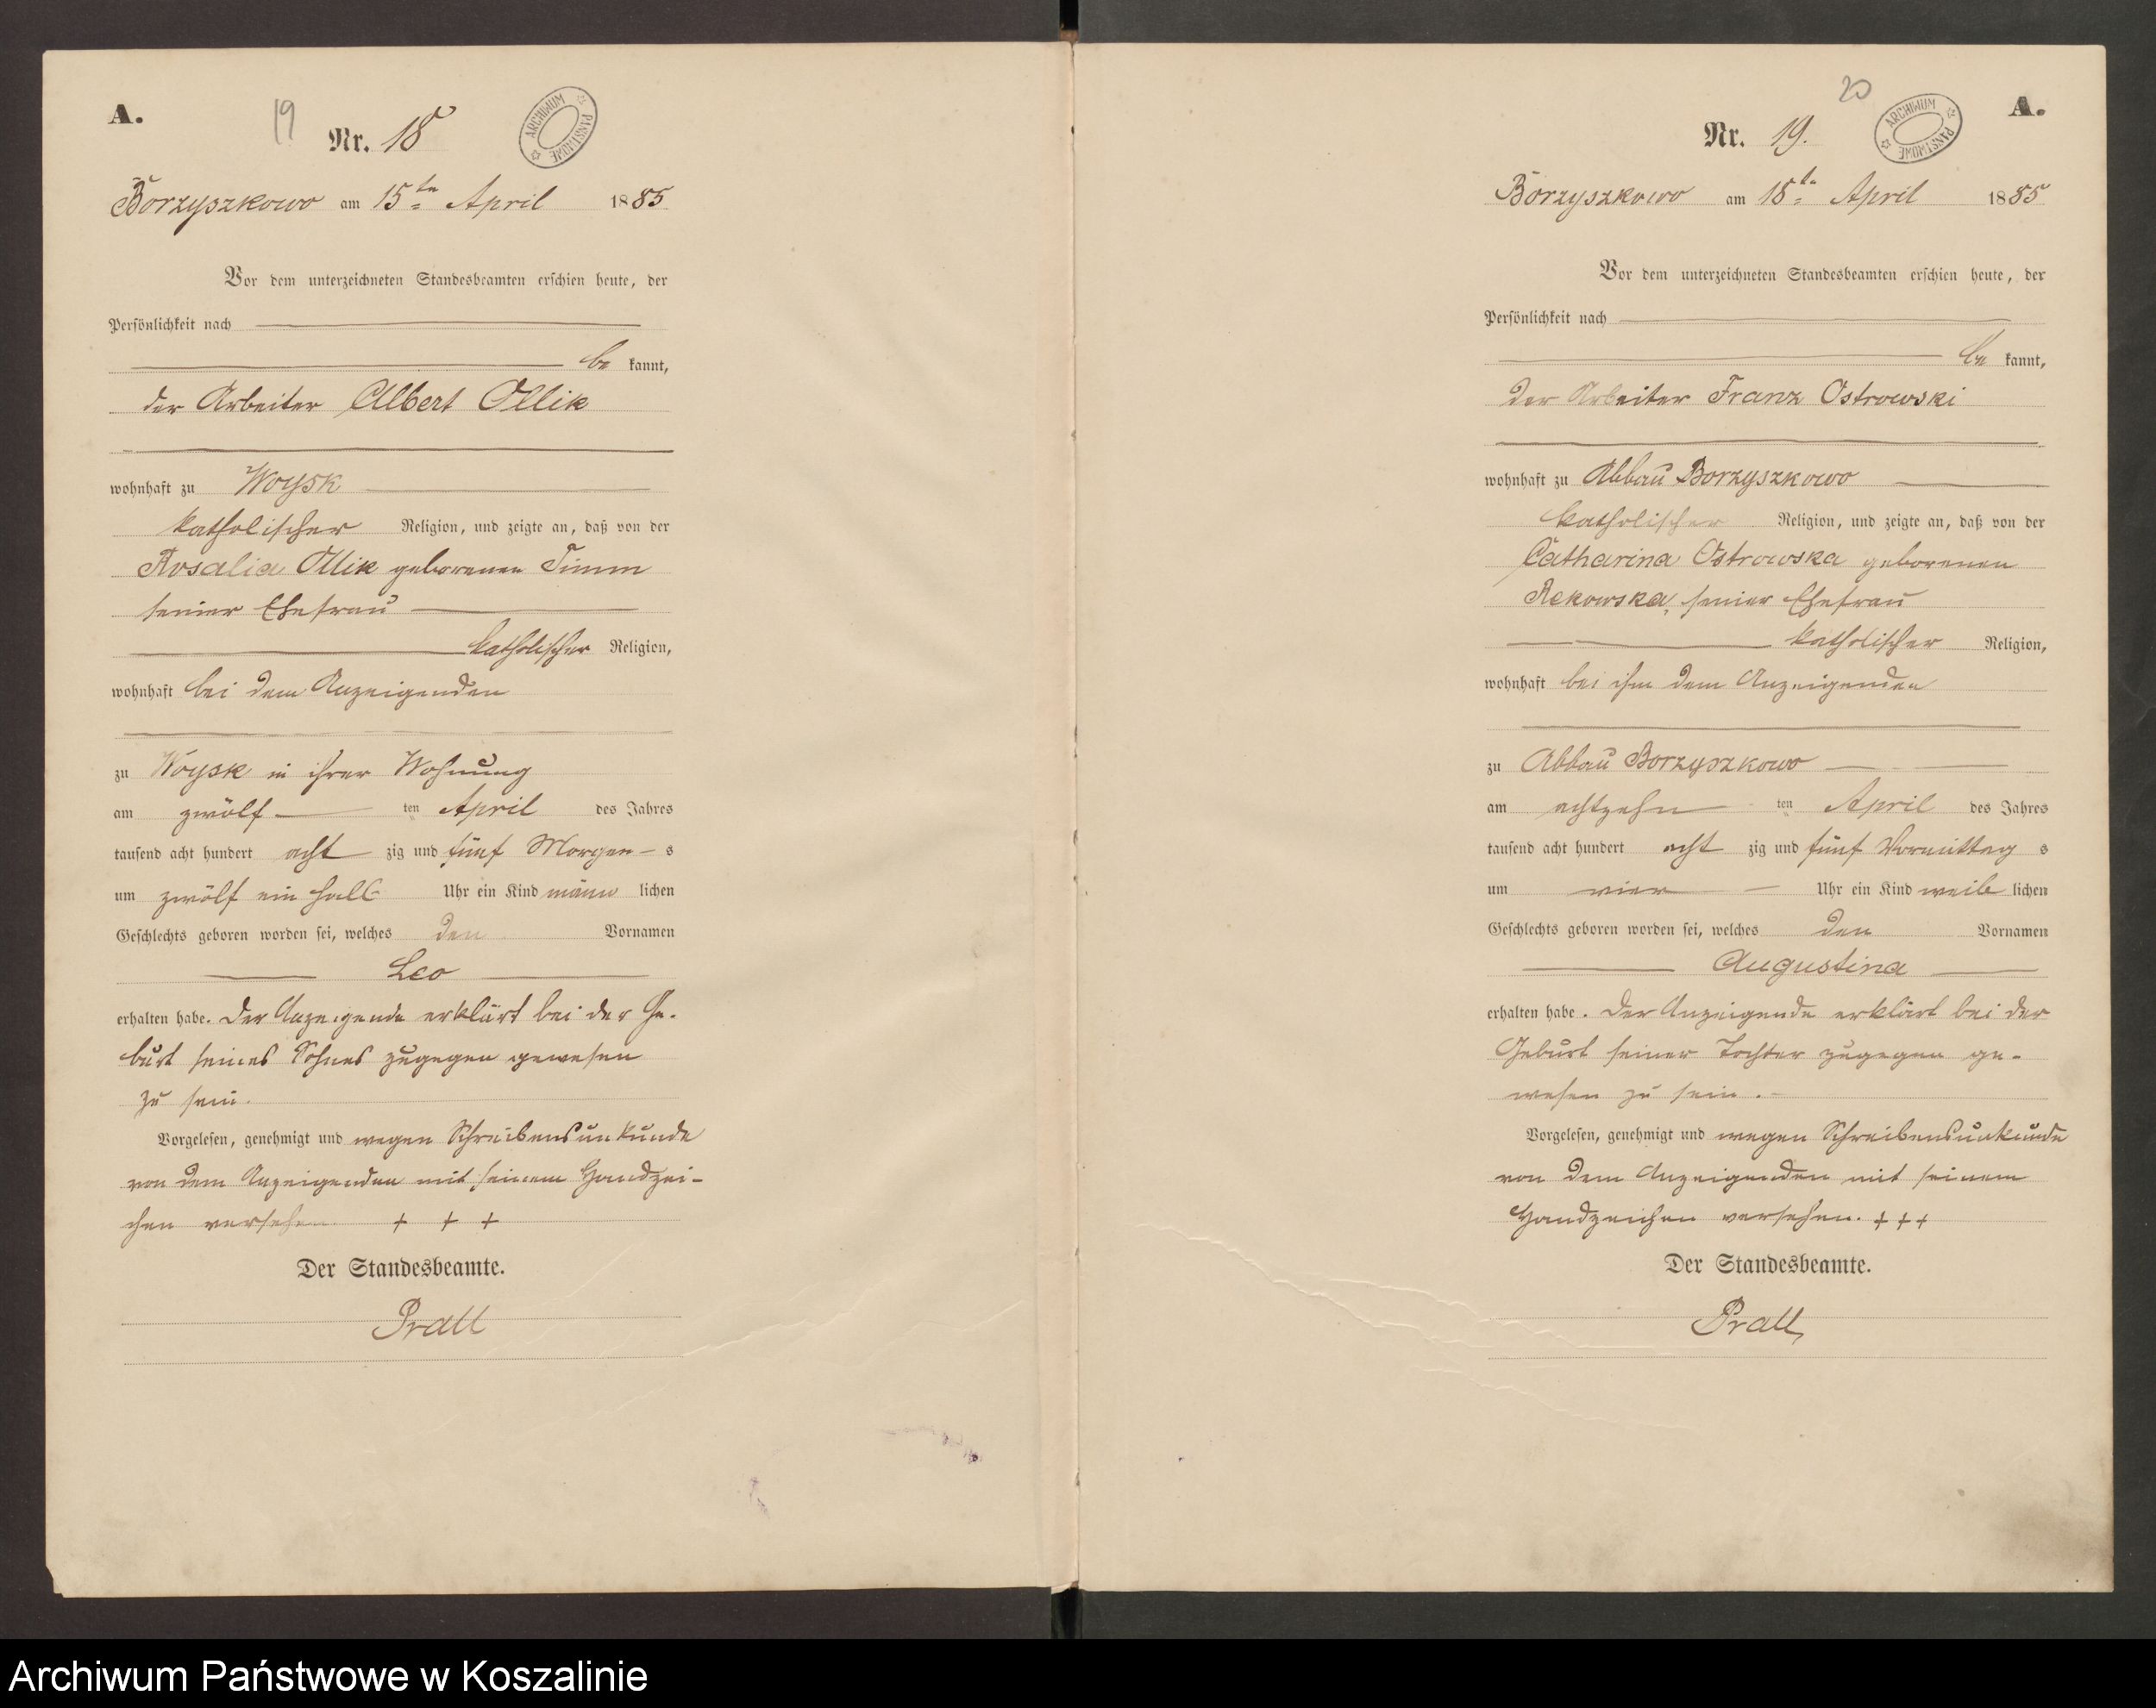 A.
19
Nr. 18
ARCHIWUM PAŃSTWOWE
Borzyszkowo am 15ten April 1885
Vor dem unterzeichneten Standesbeamten erschien heute, der
Persönlichkeit nach
be kannt,
der Arbeiter Albert Ollik
wohnhaft zu Woysk
katholischer Religion, und zeigte an, daß von der
Rosalia Ollik geborenen Timm
seiner Ehefrau
katholischer Religion,
wohnhaft bei dem Anzeigenden
zu Woysk in ihrer Wohnung
am zwölf ten April des Jahres
tausend acht hundert acht zig und fünf Morgen s
um zwölf ein halb Uhr ein Kind männ lichen
Geschlechts geboren worden sei, welches den Vornamen
Leo
erhalten habe. Der Anzeigende erklärt bei der Ge-
burt seines Sohnes zugegen gewesen
zu sein.
Vorgelesen, genehmigt und wegen Schreibensunkunde
von dem Anzeigenden mit seinem Handzei-
chen versehen + + +
Der Standesbeamte.
Prall
20
A.
Nr. 19.
ARCHIWUM PAŃSTWOWE
Borzyszkowo am 18te April 1885
Vor dem unterzeichneten Standesbeamten erschien heute, der
Persönlichkeit nach
be kannt,
der Arbeiter Franz Ostrowski
wohnhaft zu Abbau Borzyszkowo
katholischer Religion, und zeigte an, daß von der
Catharina Ostrowska geborenen
Rekowska, seiner Ehefrau
katholischer Religion,
wohnhaft bei ihm dem Anzeigenden
zu Abbau Borzyszkowo
am achtzehn ten April des Jahres
tausend acht hundert acht zig und fünf Vormittag s
um vier Uhr ein Kind weib lichen
Geschlechts geboren worden sei, welches den Vornamen
Augustina
erhalten habe. Der Anzeigende erklärt bei der
Geburt seiner Tochter zugegen ge-
wesen zu sein.
Vorgelesen, genehmigt und wegen Schreibensunkunde
von dem Anzeigenden mit seinem
Handzeichen versehen. + + +
Der Standesbeamte.
Prall
Archiwum Państwowe w Koszalinie